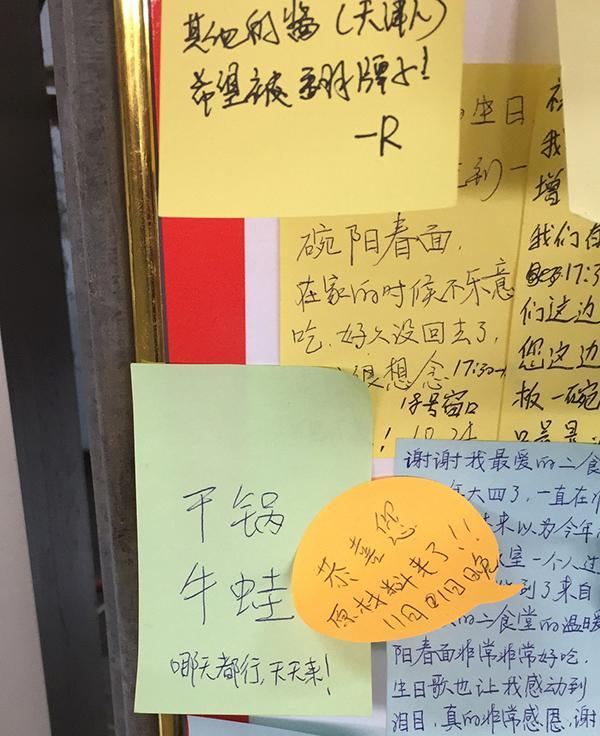 其他的酱(天津人)
希望被翻牌子!
-R
生日
到一
碗阳春面,
在家的时候不乐意
吃,好久没回去了,
很想念17:30
18号窗口
! 10.24
我
增
我们在
17:3
们这边
您这边
板一碗
干锅
牛蛙
哪天都行,天天来!
恭喜您
原材料来了!!
11日21日晚
谢谢我最爱的二食
大四了,一直在
来以为今年
室一个人过
到了来自
的二食堂的温暖
阳春面非常非常好吃.
生日歌也让我感动到
泪目,真的非常感恩,谢